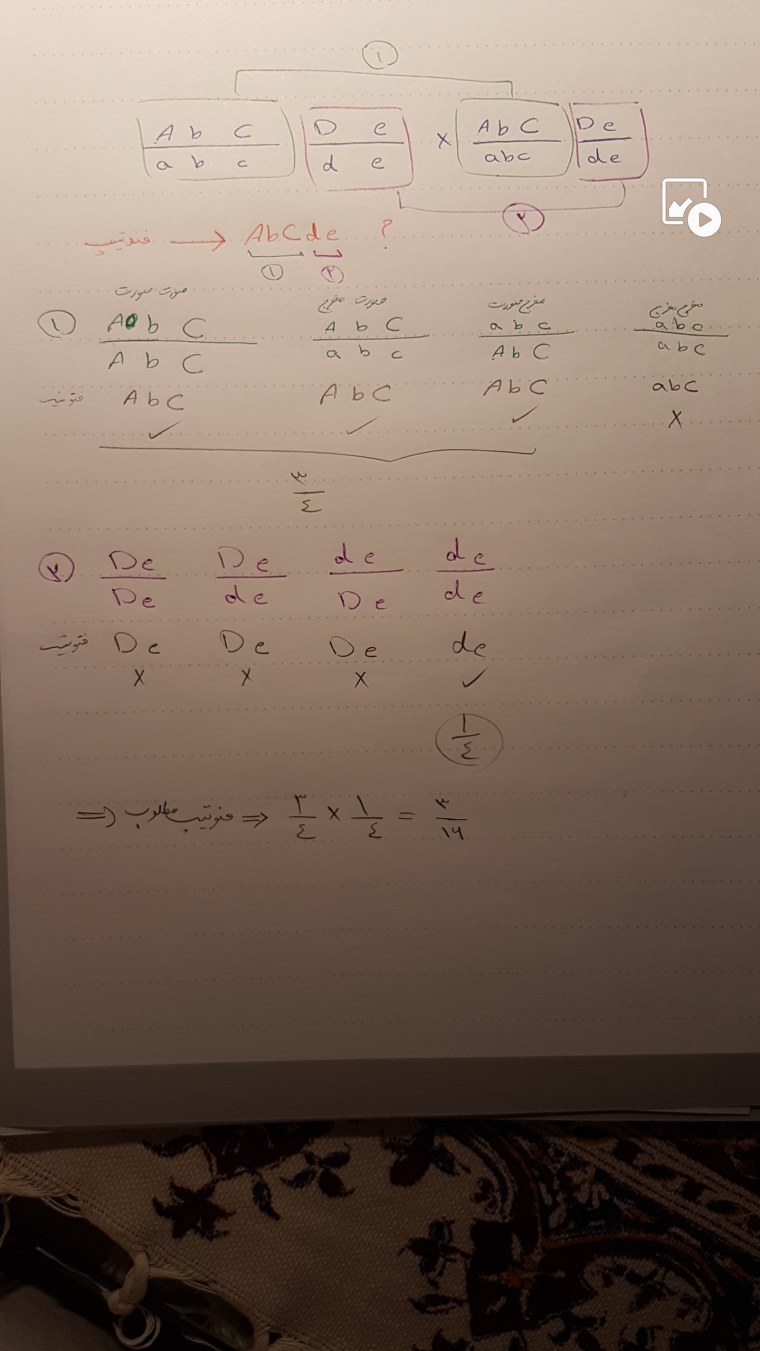 ۱
A b C D e × A b C D e
a b c d e a b c d e
۲
فنوتیپ → AbCde ?
۱ ۲
صورت صورت صورت مخرج مخرج صورت مخرج مخرج
۱ A b C A b C a b c a b c
A b C a b c A b C a b c
فنوتیپ A b C A b C A b C a b c
✓ ✓ ✓ X
۳
٤
۲ De De de de
De de De de
فنوتیپ De De De de
X X X ✓
۱
٤
⇒ فنوتیپ مطلوب ⇒ ۳/٤ × ۱/٤ = ۳/۱۶